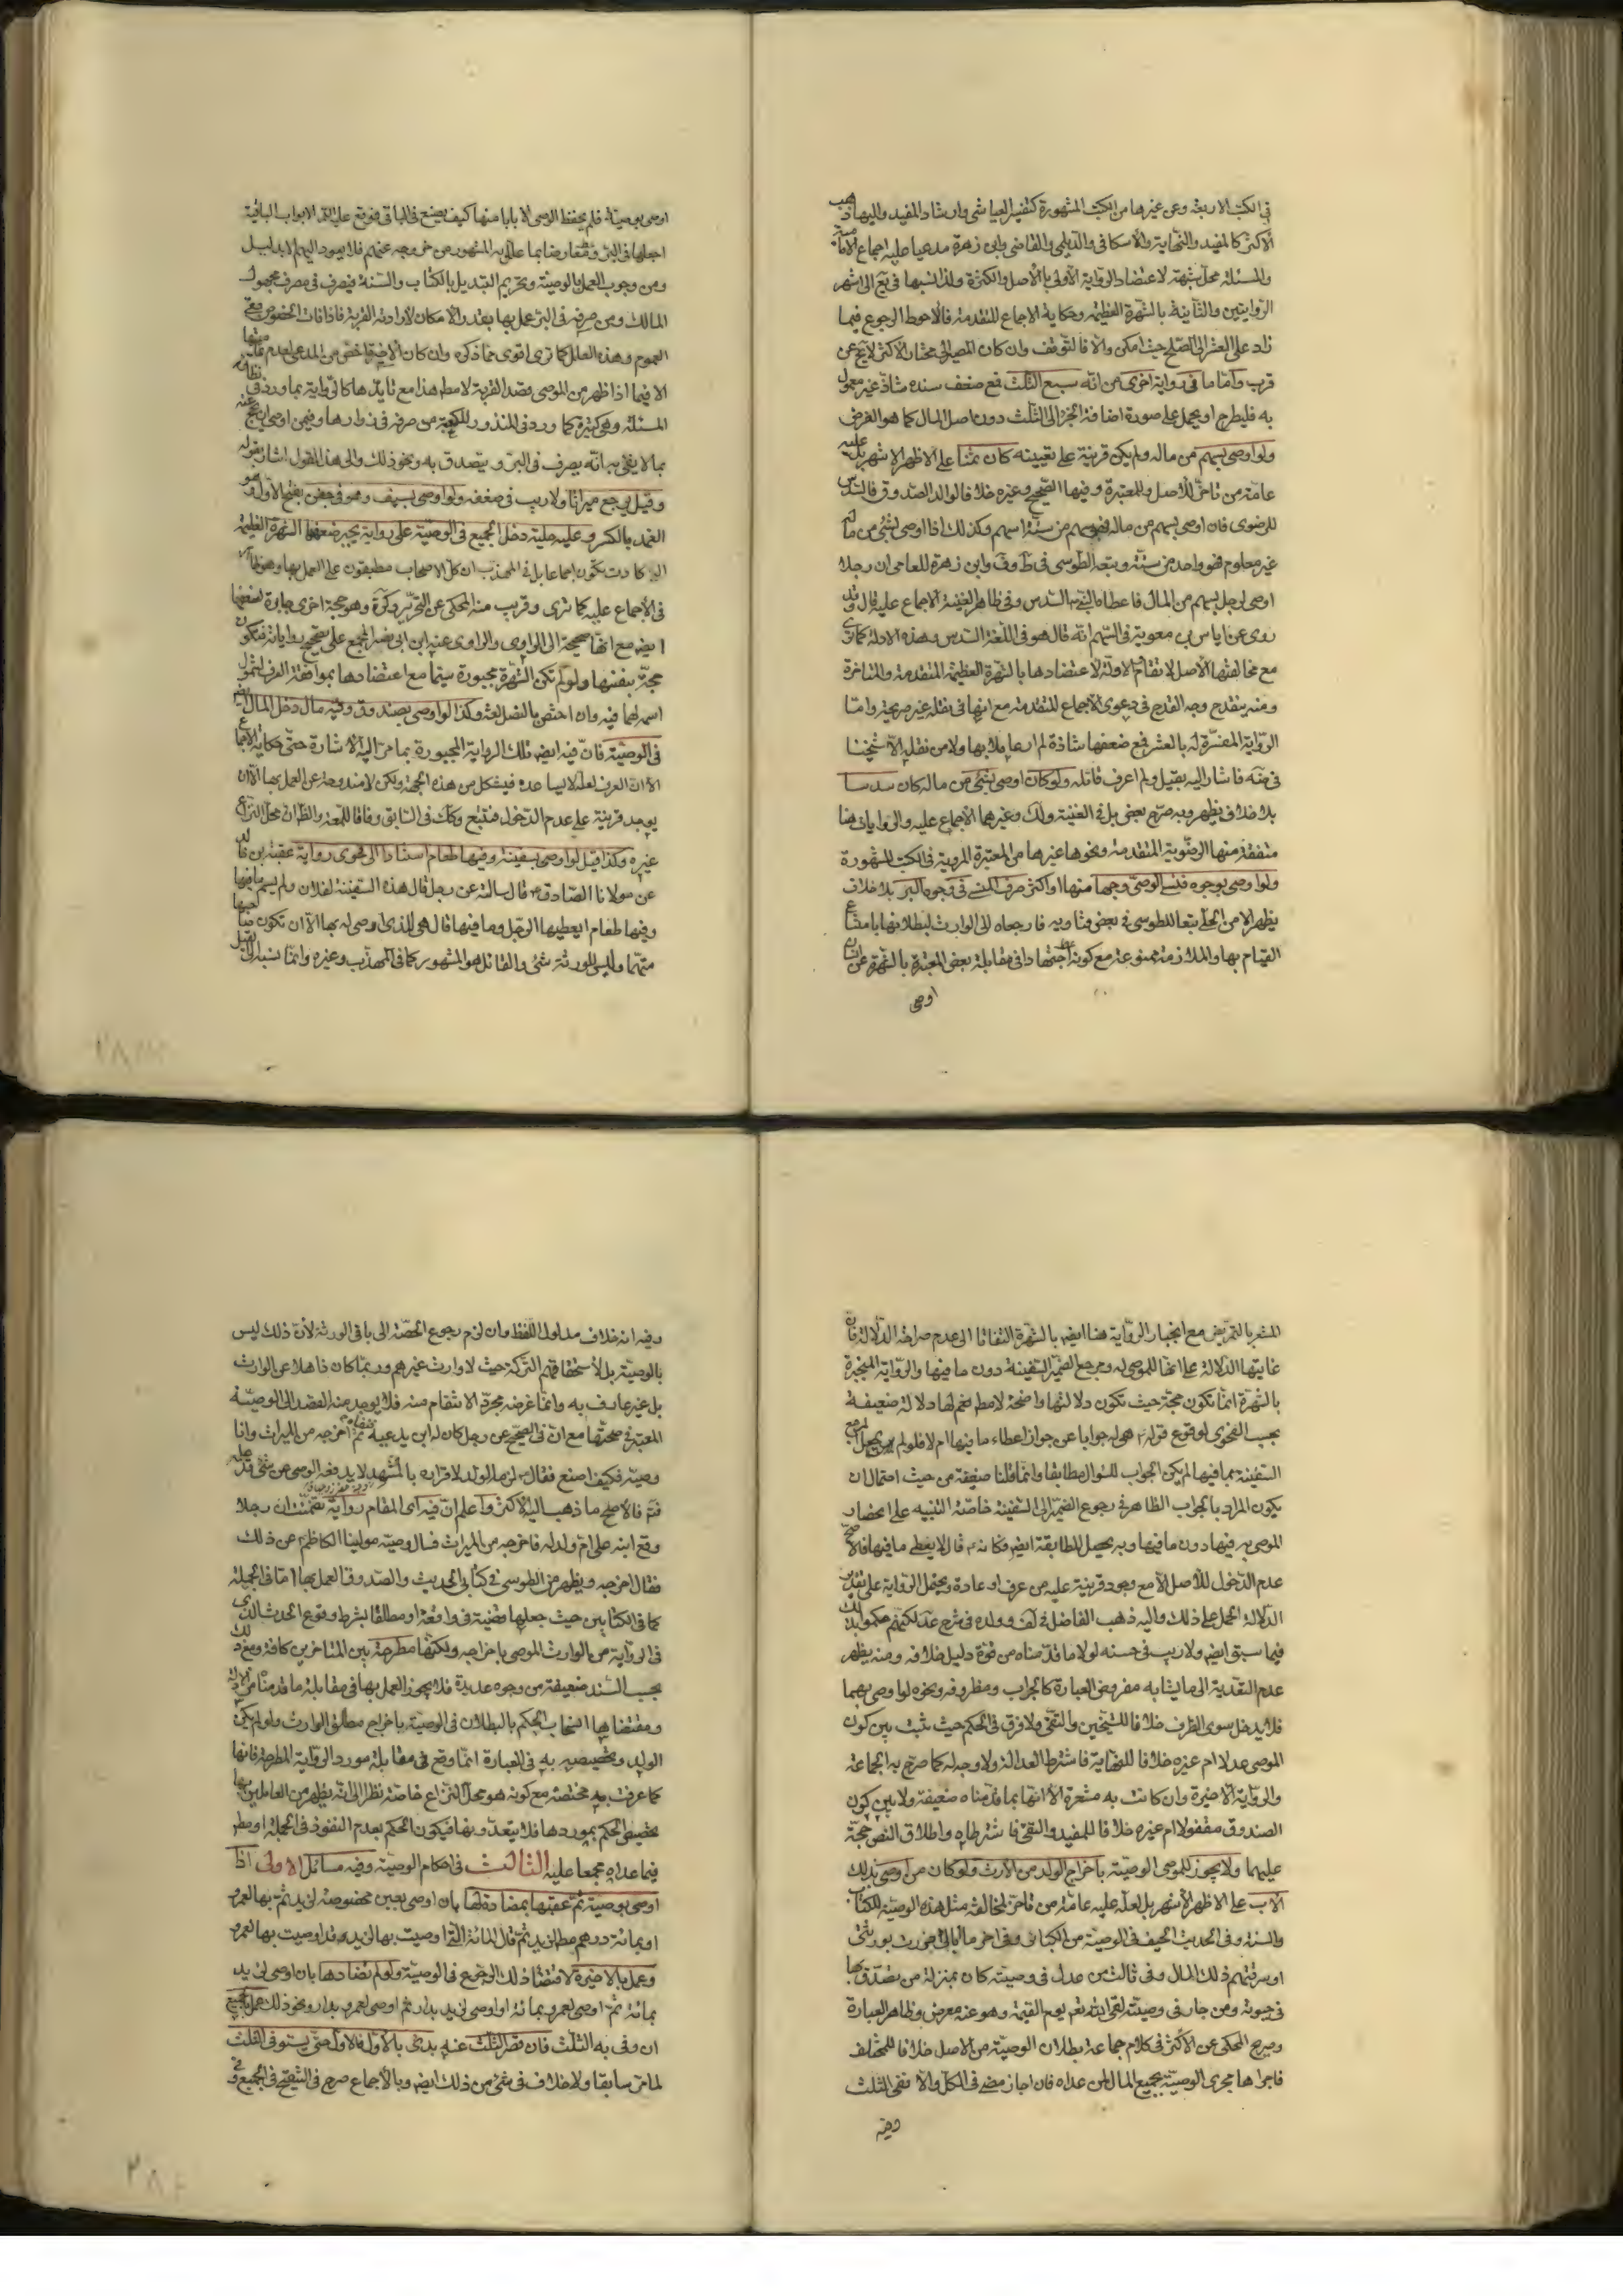 في الكتب الاربعة وعن غيرها من الكتب المشهورة كتفسير العياشي وارشاد المفيد واليها ذهب
الاكثر كالمفيد والنهاية والاسكافي والديلمي والقاضي وابن زهرة مدعيا عليه اجماع الامامية
والمسئلة محل شبهة لاعتضاد الرواية الاولى بالاصل والكثرة ولذا نسبها في يع الى اشهر
الروايتين والثانية بالشهرة العظيمة وحكاية الاجماع المتقدمة فالاحوط الرجوع فيما
زاد على العشر الى الصلح حيث امكن والا فالتوقف وان كان المصير الى مختار الاكثر لا يخ عن
قرب واما ما في رواية اخرى من انه سبع الثلث فمع ضعف سنده شاذ غير معمول
به فليطرح او يحمل على صورة اضافة الجزء الى الثلث دون اصل المال كما هو الفرض
ولو اوصى بسهم من ماله ولم يكن قرينة على تعيينه كان ثمنا على الاظهر الاشهر بل عليه
عامة من تاخر للاصل وللمعتبرة وفيها الصحيح وغيره خلافا لوالد الصدوق فالسدس
للرضوي فان اوصى بسهم من ماله فهو سهم من ستة اسهم وكذلك اذا اوصى بشيء من ماله
غير معلوم فهو واحد من ستة وتبعه الطوسي في ط وف وابن زهرة للعامي ان رجلا
اوصى لرجل بسهم من المال فاعطاه النبي السدس وفي ظاهر الغنية الاجماع عليه قال وقد
روي عن اياس بن معوية في السهم انه قال هو في اللغة السدس وهذه الادلة كما ترى
مع مخالفتها الاصل لا تقاوم الاولة لاعتضادها بالشهرة العظيمة المتقدمة والمتاخرة
ومنه ينقدح وجه القدح في دعوى الاجماع المتقدمة مع انها في نقله غير صريحة واما
الرواية المفسرة له بالعشر فمع ضعفها شاذة لم ار عاملا بها ولا من نقله الا شيخنا
في ضه فاشار اليه بقيل ولم اعرف قائله ولو كان اوصى بشيء من ماله كان سدسا
بلا خلاف يظهر وبه صرح بعض بل في الغنية ولك وغيرهما الاجماع عليه والروايات هنا
متفقة منها الرضوية المتقدمة ونحوها غيرها من المعتبرة المروية في الكتب المشهورة
ولو اوصى بوجوه فنسي الوصي وجها منها او اكثر صرف المنسي في وجوه البر بلا خلاف
يظهر الا من الحلي تبعا للطوسي في بعض فتاويه فارجعاه الى الوارث لبطلانها بامتناع
القيام بها والملازمة ممنوعة مع كونه اجتهادا في مقابلة بعض المعتبرة بالشهرة عن انسان
اوصى
اوصى بوصية فلم يحفظ الوصي الا بابا منها كيف يصنع في الباقي فوقع عليه السلام الابواب الباقية
اجعلها في البر ومعارضا بما علل به المشهور من خروجه عنهم فلا يعود اليهم الا بدليل
ومن وجوب العمل بالوصية وتحريم التبديل بالكتاب والسنة فيصرف في مصرف مجهول
المالك ومن صرفه في البر عمل بها بقدر الامكان لارادته القربة فاذا فات الخصوص بقي
العموم وهذه العلل كما ترى اقوى مما ذكره وان كان الاخير اخص من المدعى لعدم
الا فيما اذا ظهر من الموصي قصد القربة لا مط هذا مع تايدها كالرواية بما ورد في نظائر
المسئلة وهي كثيرة كما ورد في المنذور للكعبة من صرفه في زوارها وفيمن اوصى ان يحج عنه
بما لا يفي به انه يصرف في البر ويتصدق به ونحو ذلك والى هذا القول اشار بقوله
وقيل يرجع ميراثا ولا ريب في ضعفه ولو اوصى بسيف وهو في جفن بفتح الاول وهو
الغمد بالكسر وعليه حلية دخل الجميع في الوصية على رواية يجبر ضعفها الشهرة العظيمة
التي كادت تكون اجماعا بل في المهذب ان كل الاصحاب مطبقون على العمل بها وهو ظاهر
في الاجماع عليه كما ترى وقريب منه المحكي عن التحرير وكره وهو حجة اخرى جابرة لضعفها
ايضا مع انها صحيحة الى الراوي والراوي عنه ابن ابي نصر المجمع على تصحيح رواياته فتكون
حجة بنفسها ولو لم تكن الشهرة مجبورة سيما مع اعتضادها بموافقة العرف لشمول
اسمه لهما فيه وان اختص بالنصل لغة وكذا لو اوصى بصندوق وفيه مال دخل المال
في الوصية فان فيه ايضا تلك الرواية المجبورة بما مر اليه الاشارة حتى حكاية الاجماع
الا ان العرف لعله لا يساعده فيشكل من هذه الجهة ولكن لا مندوحة عن العمل بها الا ان
يوجد قرينة على عدم الدخول فتتبع وكك في السابق وفاقا للمعه والظ ان محل النزاع
غيره وكذا قيل لو اوصى بسفينة وفيها طعام استنادا الى فحوى رواية عقبة بن خالد
عن مولانا الصادق قال سالته عن رجل قال هذه السفينة لفلان ولم يسم ما فيها
وفيها طعام ايعطيها الرجل وما فيها قال هي للذي اوصى له بها الا ان تكون صاحبها
متهما وليس للورثة شيء والقائل هو المشهور كما في المهذب وغيره وانما نسبه الى القيل
المشعر بالتمريض مع انجبار الرواية هنا ايضا بالشهرة التفاتا الى عدم صراحة الدلالة فان
غايتها الدلالة على انها للموصى له ومرجع الضمير السفينة دون ما فيها والرواية المنجبرة
بالشهرة انما تكون حجة حيث تكون دلالتها واضحة لا مط نعم لها دلالة ضعيفة
بحسب الفحوى لوقوع قوله هي له جوابا عن جواز اعطاء ما فيها ام لا فلو لم يجعل المرجع
السفينة بما فيها لم يكن الجواب للسؤال مطابقا وانما قلنا ضعيفة من حيث احتمال ان
يكون المراد بالجواب الظاهر في رجوع الضمير الى السفينة خاصة التنبيه على انحصار
الموصى به فيها دون ما فيها وبه يحصل المطابقة ايضا فكانه قال لا يعطى ما فيها فالاصح
عدم الدخول للاصل الا مع وجود قرينة عليه من عرف او عادة ويحتمل الرواية على تقدير
الدلالة الحمل على ذلك واليه ذهب الفاضل في لف وولده في شرح عد لكنهم حكموا بذلك
فيما سبق ايضا ولا ريب في حسنه لولا ما قدمناه من قوة دليل خلافه ومنه يظهر
عدم التعدية الى ما يشابه مفروض العبارة كالجراب ومظروفه ونحوه لو اوصى بهما
فلا يدخل سوى الظرف خلافا للشيخين والتقي ولا فرق في الحكم حيث يثبت بين كون
الموصي عدلا ام غيره خلافا للنهاية فاشترط العدالة ولا وجه له كما صرح به الجماعة
والرواية الاخيرة وان كانت به مشعرة الا انها بما قدمناه ضعيفة ولا بين كون
الصندوق مقفولا ام غيره خلافا للمفيد والتقي فاشترطاه واطلاق النص حجة
عليهما ولا يجوز للموصي الوصية باخراج الولد من الارث ولو كان من اوصى بذلك
الاب على الاظهر الاشهر بل لعله عليه عامة من تاخر لمخالفة مثل هذه الوصية للكتاب
والسنة وفي الحديث الحيف في الوصية من الكبائر وفي اخر ما ابالي اضررت بورثتي
او سرقتهم ذلك المال وفي ثالث من عدل في وصيته كان بمنزلة من تصدق بها
في حيوته ومن جار في وصيته لقي الله تعم يوم القيمة وهو عنه معرض وظاهر العبارة
وصريح المحكي عن الاكثر في كلام جماعة بطلان الوصية من الاصل خلافا للمختلف
فاجراها مجرى الوصية بجميع المال لمن عداه فان اجاز مضى في الكل والا نفي الثلث
وفيه
وفيه انه خلاف مدلول اللفظ وان لزم رجوع الحصة الى باقي الورثة لان ذلك ليس
بالوصية بل لاستحقاقهم التركة حيث لا وارث غيرهم وربما كان ذاهلا عن الوارث
بل غير عارف به وانما غرضه مجرد الانتقام منه فلا يوجد منه القصد الى الوصية
المعتبر في صحتها مع ان في الصحيح عن رجل كان له ابن يدعيه ثم اخرجه من الميراث وانا
وصيه فكيف اصنع فقال لزمه الولد لاقراره بالمشهد لا يدفعه الوصي عن شيء قد علمه
فتم فالاصح ما ذهب اليه الاكثر واعلم ان فيه اي المقام رواية تضمنت ان رجلا
وقع ابنه على ام ولد له فاخرجه من الميراث فسال وصيه مولينا الكاظم عن ذلك
فقال اخرجه ويظهر من الطوسي في كتابي الحديث والصدوق العمل بها اما في الجملة
كما في الكتابين حيث جعلها قضية في واقعة او مطلقا بشرط وقوع الحدث الذي
في الرواية من الوارث الموصى باخراجه ولكنها مطرحة بين المتاخرين كافة ومع ذلك
بحسب السند ضعيفة من وجوه عديدة فلا يجوز العمل بها في مقابلة ما قدمناه من الادلة
ومقتضاها انسحاب الحكم بالبطلان في الوصية باخراج مطلق الوارث ولو لم يكن
الولد وتخصيصه به في العبارة انما وقع في مقابلة مورد الرواية المطرحة فانها
كما عرفت به مختصة مع كونه هو محل النزاع خاصة نظرا الى انه يظهر من العاملين بها
تخصيص الحكم بموردها فلا يتعدونها فيكون الحكم بعدم النفوذ في الجملة او مط
فيما عداه مجمعا عليه الثالث في احكام الوصية وفيه مسائل الاولى اذا
اوصى بوصية ثم عقبها بمضادة لها بان اوصى بعين مخصوصة لزيد ثم بها لعمرو
او بمائة درهم مط لزيد ثم قال المائة التي اوصيت بها لزيد قد اوصيت بها لعمرو
وعمل بالاخيرة لاقتضاء ذلك الرجوع في الوصية ولو لم تضادها بان اوصى لزيد
بمائة ثم اوصى لعمرو بمائة او اوصى لزيد بدار ثم اوصى لعمرو بدار ونحو ذلك عمل بالجميع
ان وفى به الثلث فان قصر الثلث عنه بدئ بالاول فالاول حتى يستوفى الثلث
لما مر سابقا ولا خلاف في شيء من ذلك ايضا وبالاجماع صرح في التنقيح في الجميع وفي